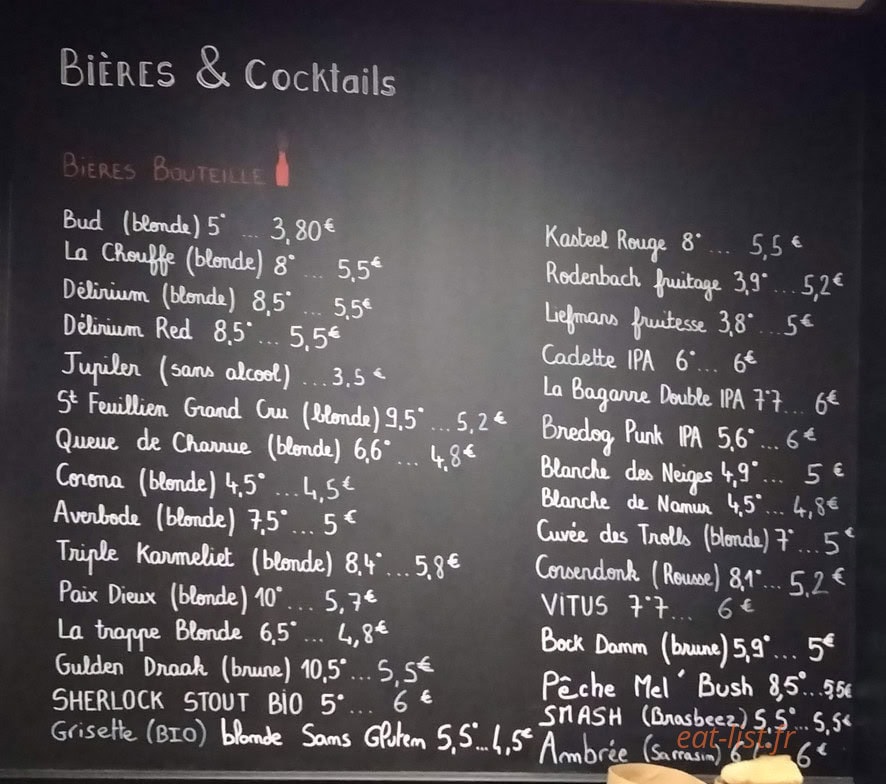 BIÈRES & Cocktails
BIERES BOUTEILLE
Bud (blonde) 5° ... 3,80€
La Chouffe (blonde) 8° ... 5,5€
Délirium (blonde) 8,5° ... 5,5€
Délirium Red 8,5° ... 5,5€
Jupiler (sans alcool) ...3,5€
St Feuillien Grand Cru (blonde) 9,5° ...5,2€
Queue de Charrue (blonde) 6,6° ... 4,8€
Corona (blonde) 4,5° ...4,5€
Averbode (blonde) 7,5° ... 5€
Triple Karmeliet (blonde) 8,4° ...5,8€
Paix Dieux (blonde) 10° ... 5,7€
La trappe Blonde 6,5° ... 4,8€
Gulden Draak (brune) 10,5° ... 5,5€
SHERLOCK STOUT BIO 5° ... 6€
Grisette (BIO) blonde Sans Gluten 5,5° ...4,5€
Kasteel Rouge 8° ... 5,5€
Rodenbach fruitage 3,9° ...5,2€
Liefmans fruitesse 3,8° ...5€
Cadette IPA 6° ... 6€
La Bagarre Double IPA 7°7 ... 6€
Bredog Punk IPA 5,6° ... 6€
Blanche des Neiges 4,9° ... 5€
Blanche de Namur 4,5° ... 4,8€
Cuvée des Trolls (blonde) 7° ...5€
Corsendonk (Rousse) 8,1° ... 5,2€
VITUS 7°7 ... 6€
Bock Damm (brune) 5,9° ... 5€
Pêche Mel' Bush 8,5° ...5,5€
SMASH (Brasbeez) 5,5° ...5,5€
Ambrée (Sarrasin) 6 6€
eat-list.fr